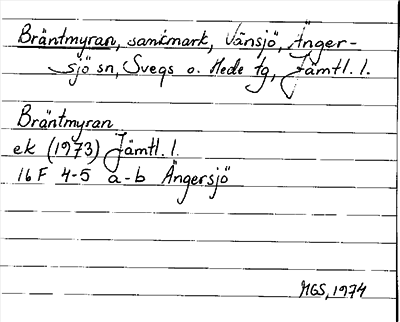 Bräntmyran, sankmark, Vänsjö, Änger-
sjö sn, Svegs o. Hede tg, Jämtl. l.
Bräntmyran
ek (1973) Jämtl. l.
16F 4-5 a-b Ängersjö
MGS, 1974